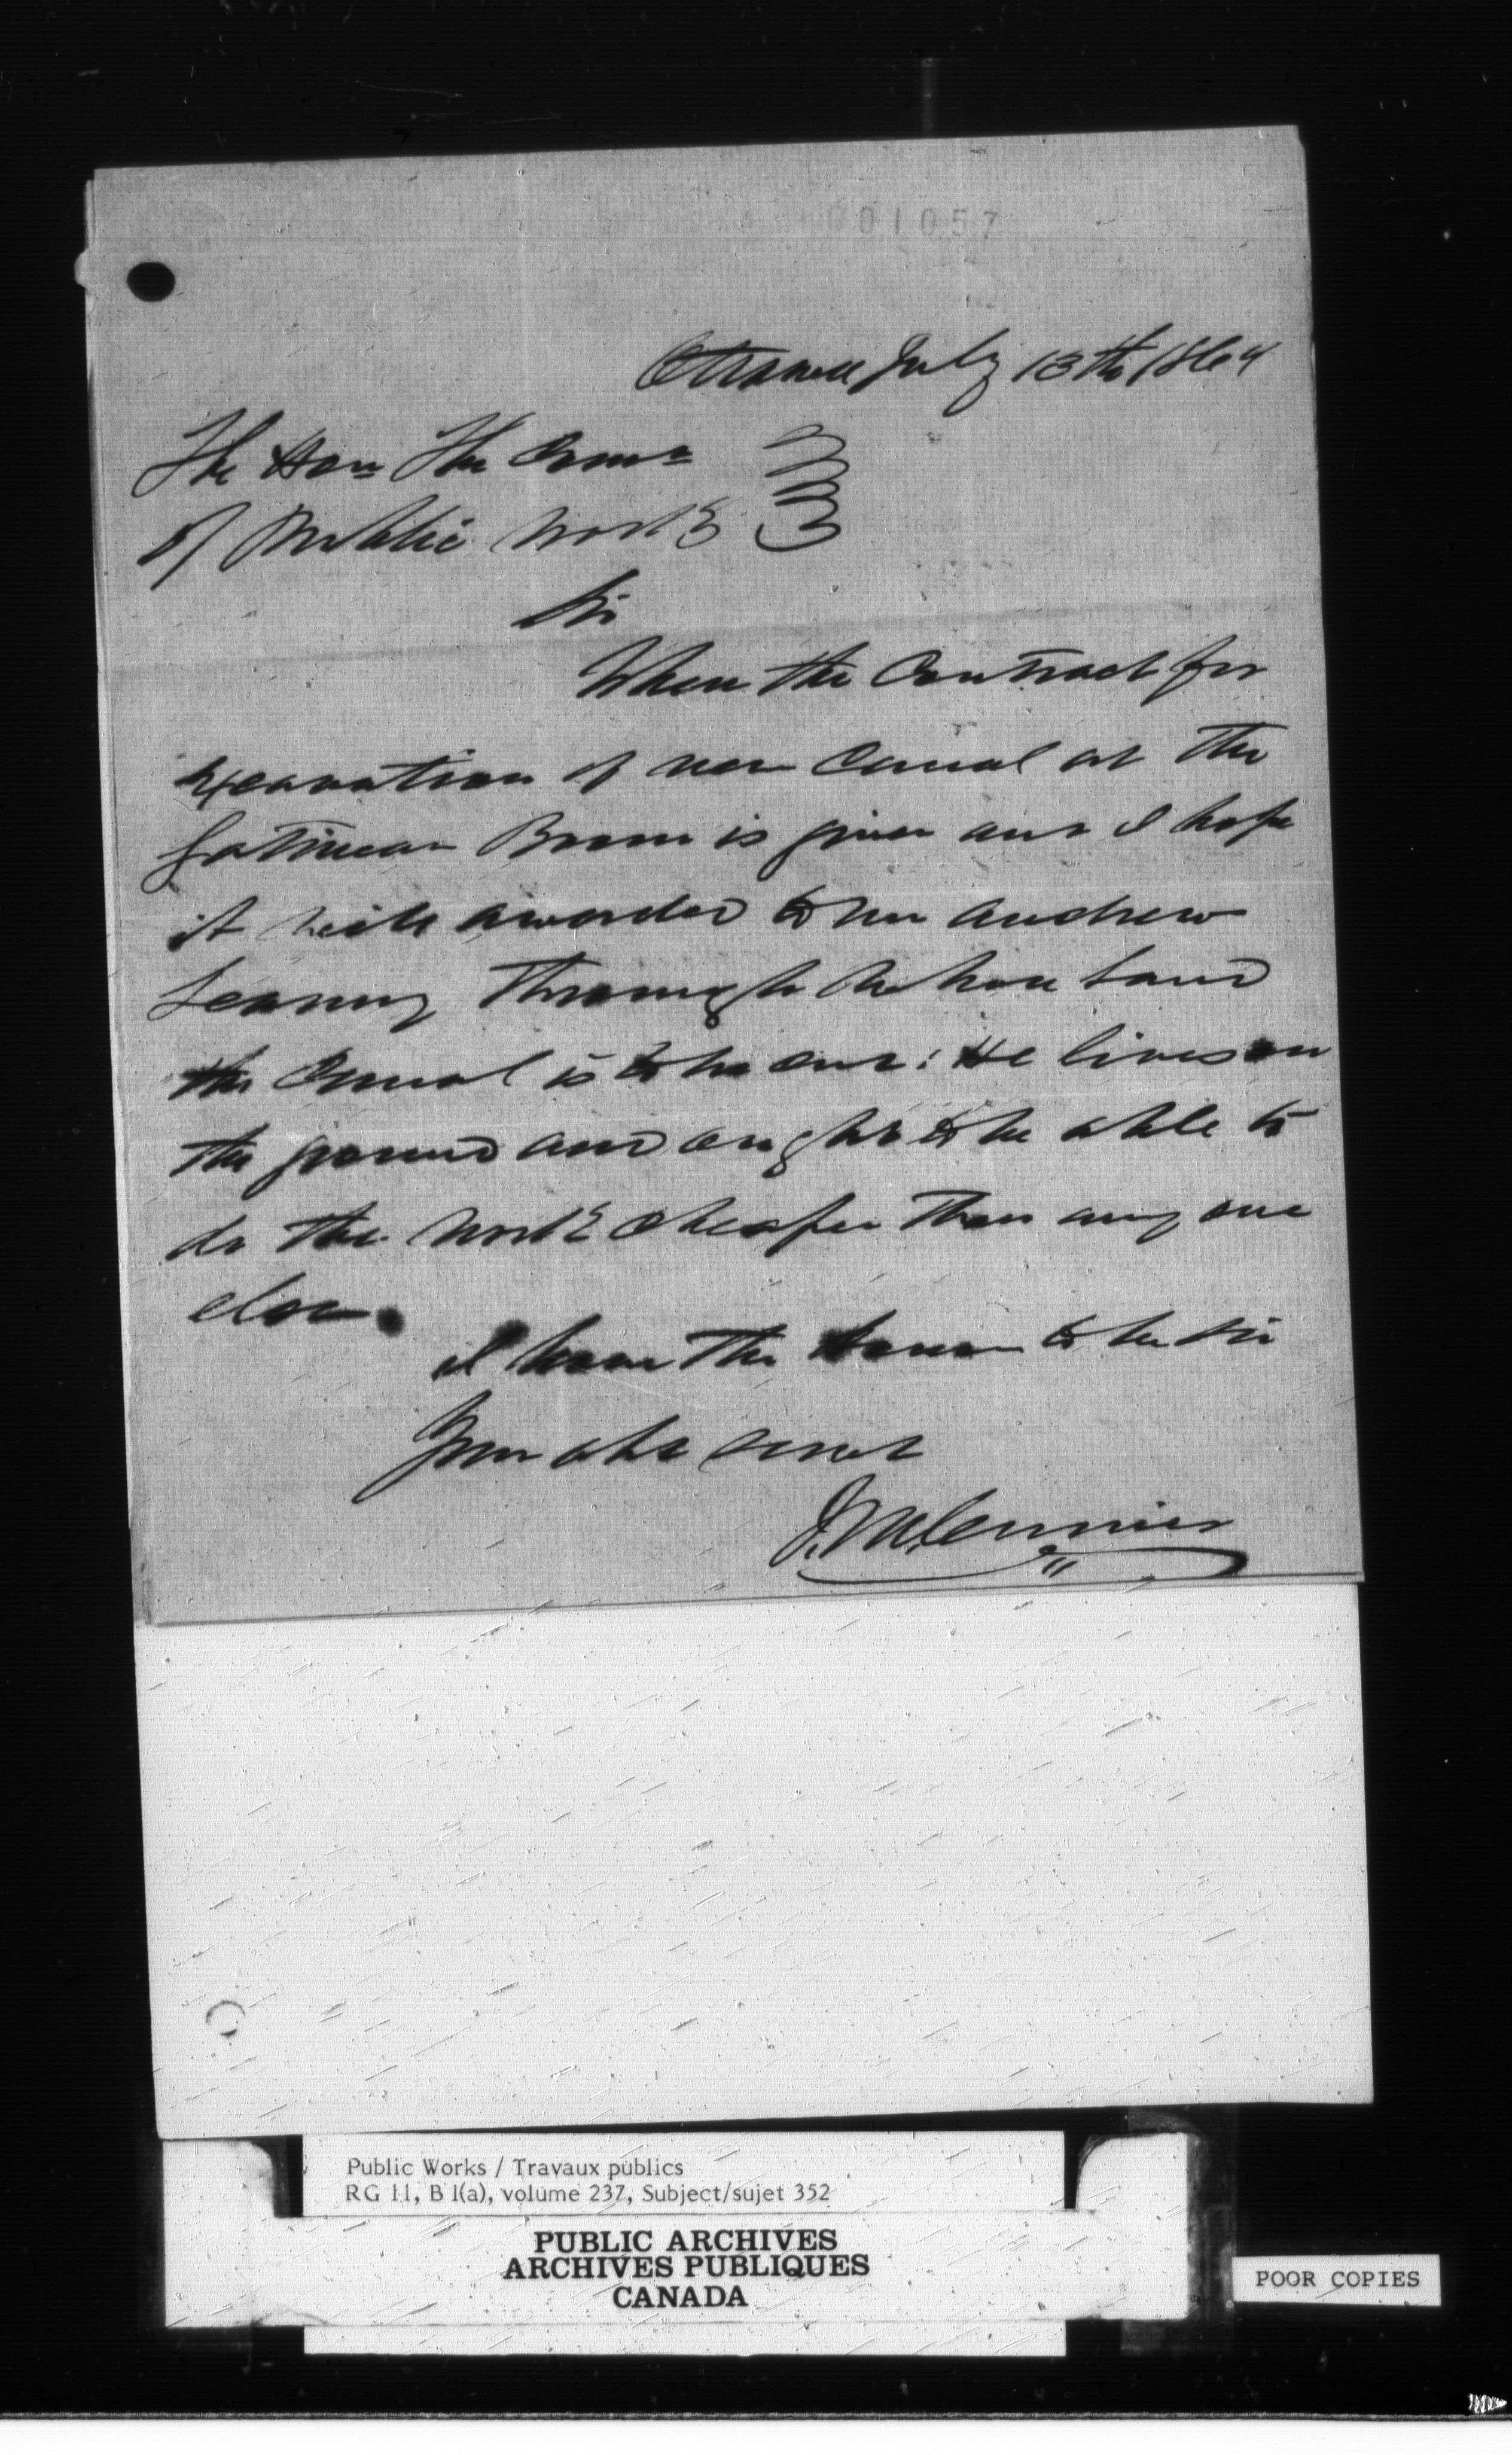 001057
Ottawa July 13th 1864
The Hon The Comr
of Public Works
Sir
When the Contract for
excavation of new Canal at the
Gatineau Boom is given out I hope
it will awarded to Mr Andrew
Leamy Through whose Land
the Canal is to be cut: He lives on
the ground and ought to be able to
do the work cheaper than any one
else.
I have the honor to be Sir
Your obt Servt
Public Works / Travaux publics
RG 11, B 1(a), volume 237, Subject/sujet 352
PUBLIC ARCHIVES
ARCHIVES PUBLIQUES
CANADA
POOR COPIES